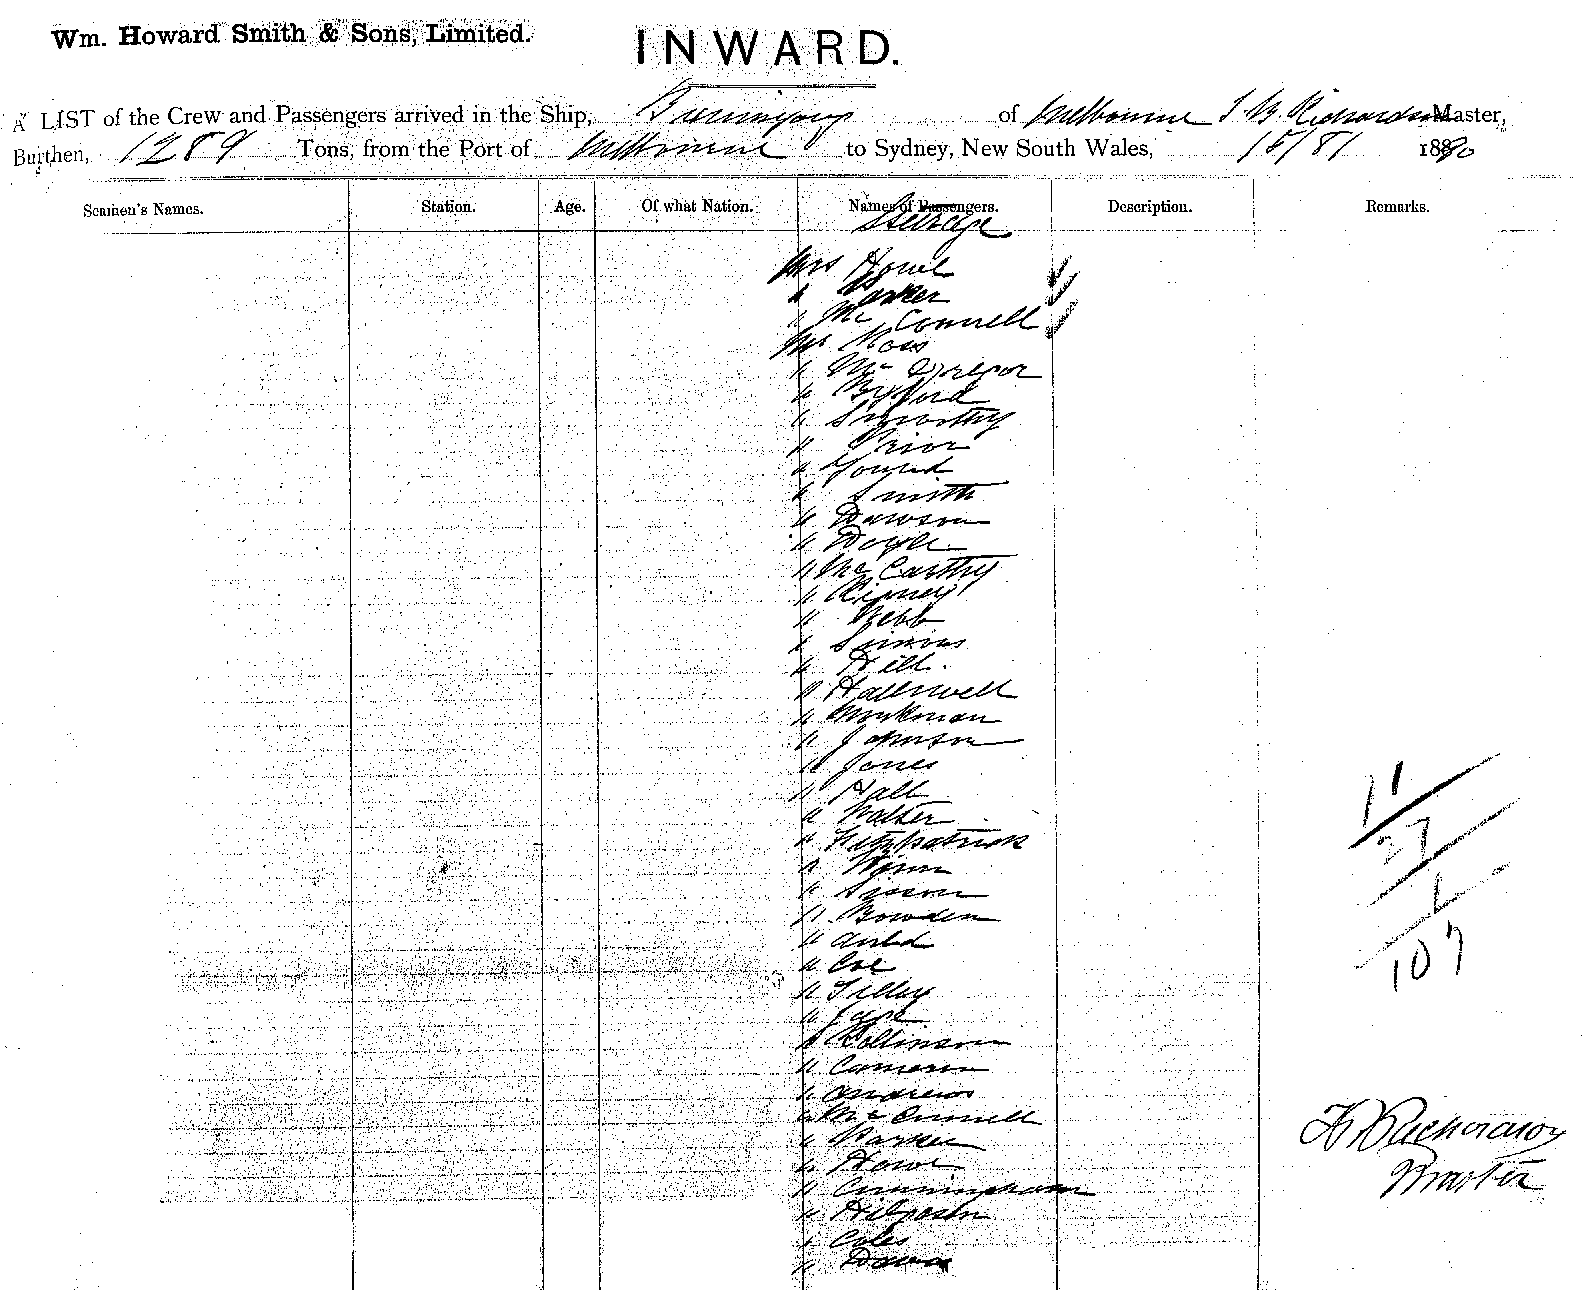 Wm. Howard Smith & Sons, Limited.
INWARD.
A LIST of the Crew and Passengers arrived in the Ship, Buninyong of Melbourne Richardson Master,
Burthen, 1289 Tons, from the Port of Melbourne to Sydney, New South Wales, 1890
Seamen's Names. Station. Age. Of what Nation. Names of Passengers. Description. Remarks.
Steerage
Mrs Howe
" Parker
" McConnell
Mr Moss
" McGregor
" Byford
"
" Prior
"
" Smith
" Dawson
" Doyle
" McCarthy
"
" Webb
" Simons
" Hill.
" Halliwell
" Workman
" Johnson
" Jones
" Hall
" Walter
" Fitzpatrick
"
" Sisson
" Bowden
" Auld
" Coe
" Tilley
" Jack
" Collinson
" Cameron
" Andrews
" McConnell
" Parker
" Howe
" Cunningham
"
" Coles
"
11
27
1
107
Richardson
Master